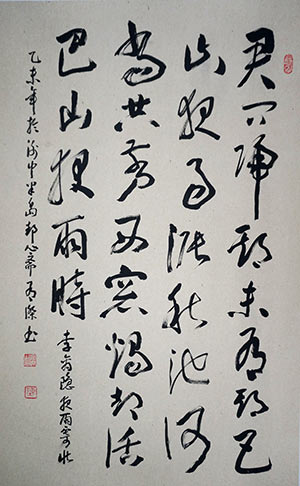 君问歸期未有期巴
山夜雨涨秋池何
当共剪西窗燭却话
巴山夜雨時
李商隐夜雨寄北
乙未年於渝中半岛心斋书